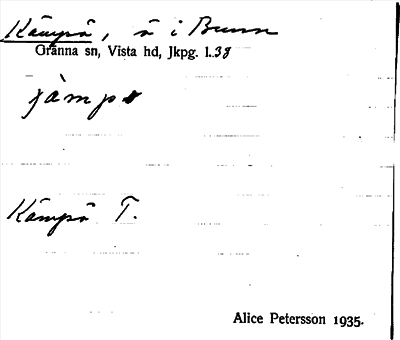 Kämpö, ö i Bunn
Gränna sn, Vista hd, Jkpg. l. 38
Kämpö T.
Alice Petersson 1935.